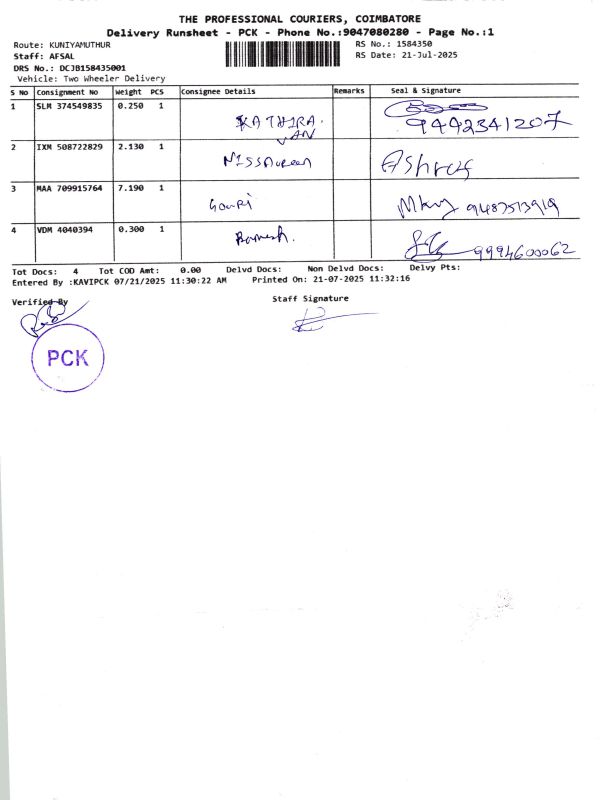 THE PROFESSIONAL COURIERS, COIMBATORE
Delivery Runsheet - PCK - Phone No.:9047080280 - Page No.:1
Route: KUNIYAMUTHUR RS No.: 1584350
Staff: AFSAL RS Date: 21-Jul-2025
DRS No.: DCJB158435001
Vehicle: Two Wheeler Delivery
S No Consignment No Weight PCS Consignee Details Remarks Seal & Signature
1 SLM 374549835 0.250 1 KATHIRA.
VAN 9442341207
2 IXM 508722829 2.130 1 Ashraf
3 MAA 709915764 7.190 1 Gouri
4 VDM 4040394 0.300 1 Ramesh. 9994600062
Tot Docs: 4 Tot COD Amt: 0.00 Delvd Docs: Non Delvd Docs: Delvy Pts:
Entered By :KAVIPCK 07/21/2025 11:30:22 AM Printed On: 21-07-2025 11:32:16
Verified By Staff Signature
PCK